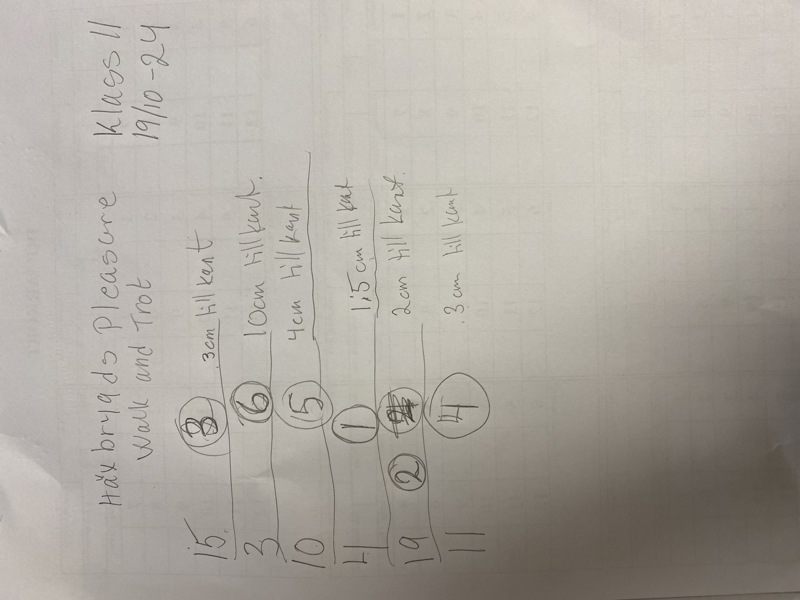 Häxbrygds Pleasure Klass 11
Walk and Trot 19/10-24
15. 3 3cm till kant
3 6 10cm till kant.
10 5 4cm till kant
41 1 1,5cm till kat
19 2 2cm till kant.
11 4 3cm till kant